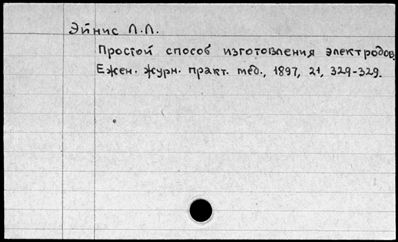 Эйнис Л.Л.
Простой способ изготовления электродов.
Ежен. журн. практ. мед., 1897, 21, 329-329.